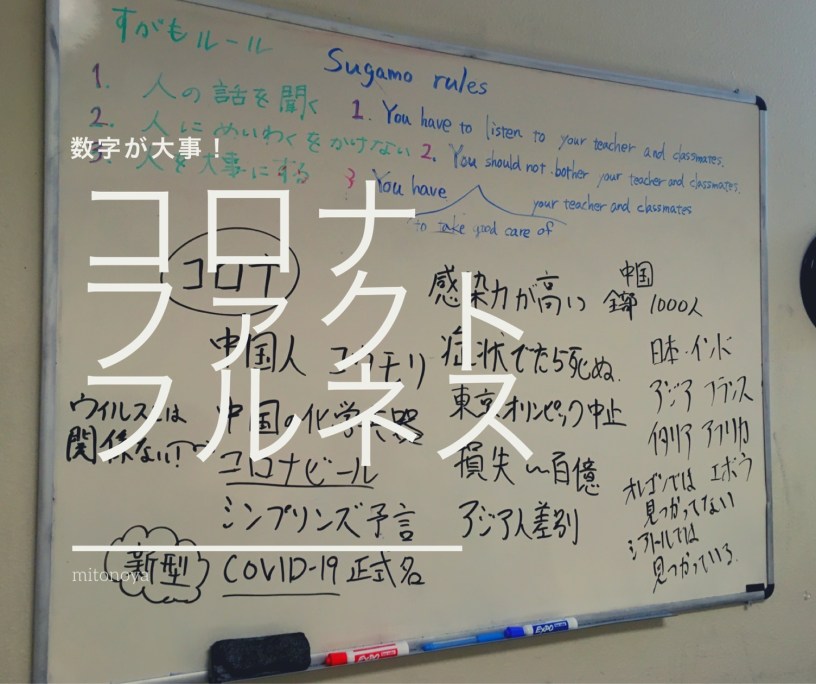 すがもルール
Sugamo rules
1. 人の話を聞く
2. 人にめいわくをかけない
3. 人を大事にする
1. You have to listen to your teacher and classmates.
2. You should not bother your teacher and classmates.
3 You have your teacher and classmates
to take good care of
数字が大事！
コロナ
ファクト
フルネス
mitonoya
コロナ
中国人 コウモリ
ウイルスとは
関係ない！
中国の化学兵器
コロナビール
シンプソンズ予言
新型 COVID-19 正式名
感染力が高い
症状でたら死ぬ.
東京オリンピック中止
損失〜百億
アジア人差別
中国
全部 1000人
日本・インド
アジア フランス
イタリア アフリカ
オレゴンでは エボラ
見つかってない
シアトルでは
見つかっている.
EXPO
EXPO